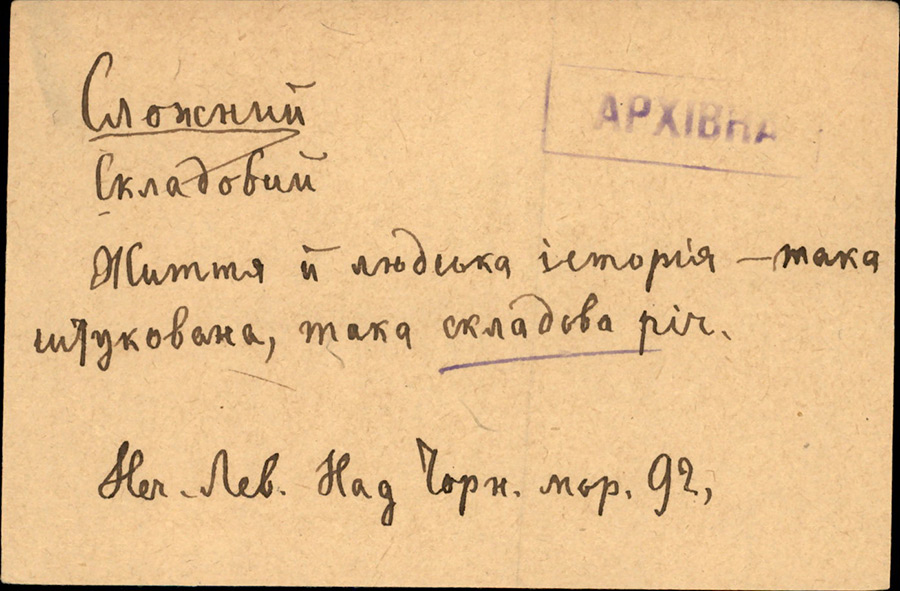 Сложний
АРХІВНА
Складовий
Життя й людська історія – така
штукована, така складова річ.
Неч.-Лев. Над Чорн. мор. 92,